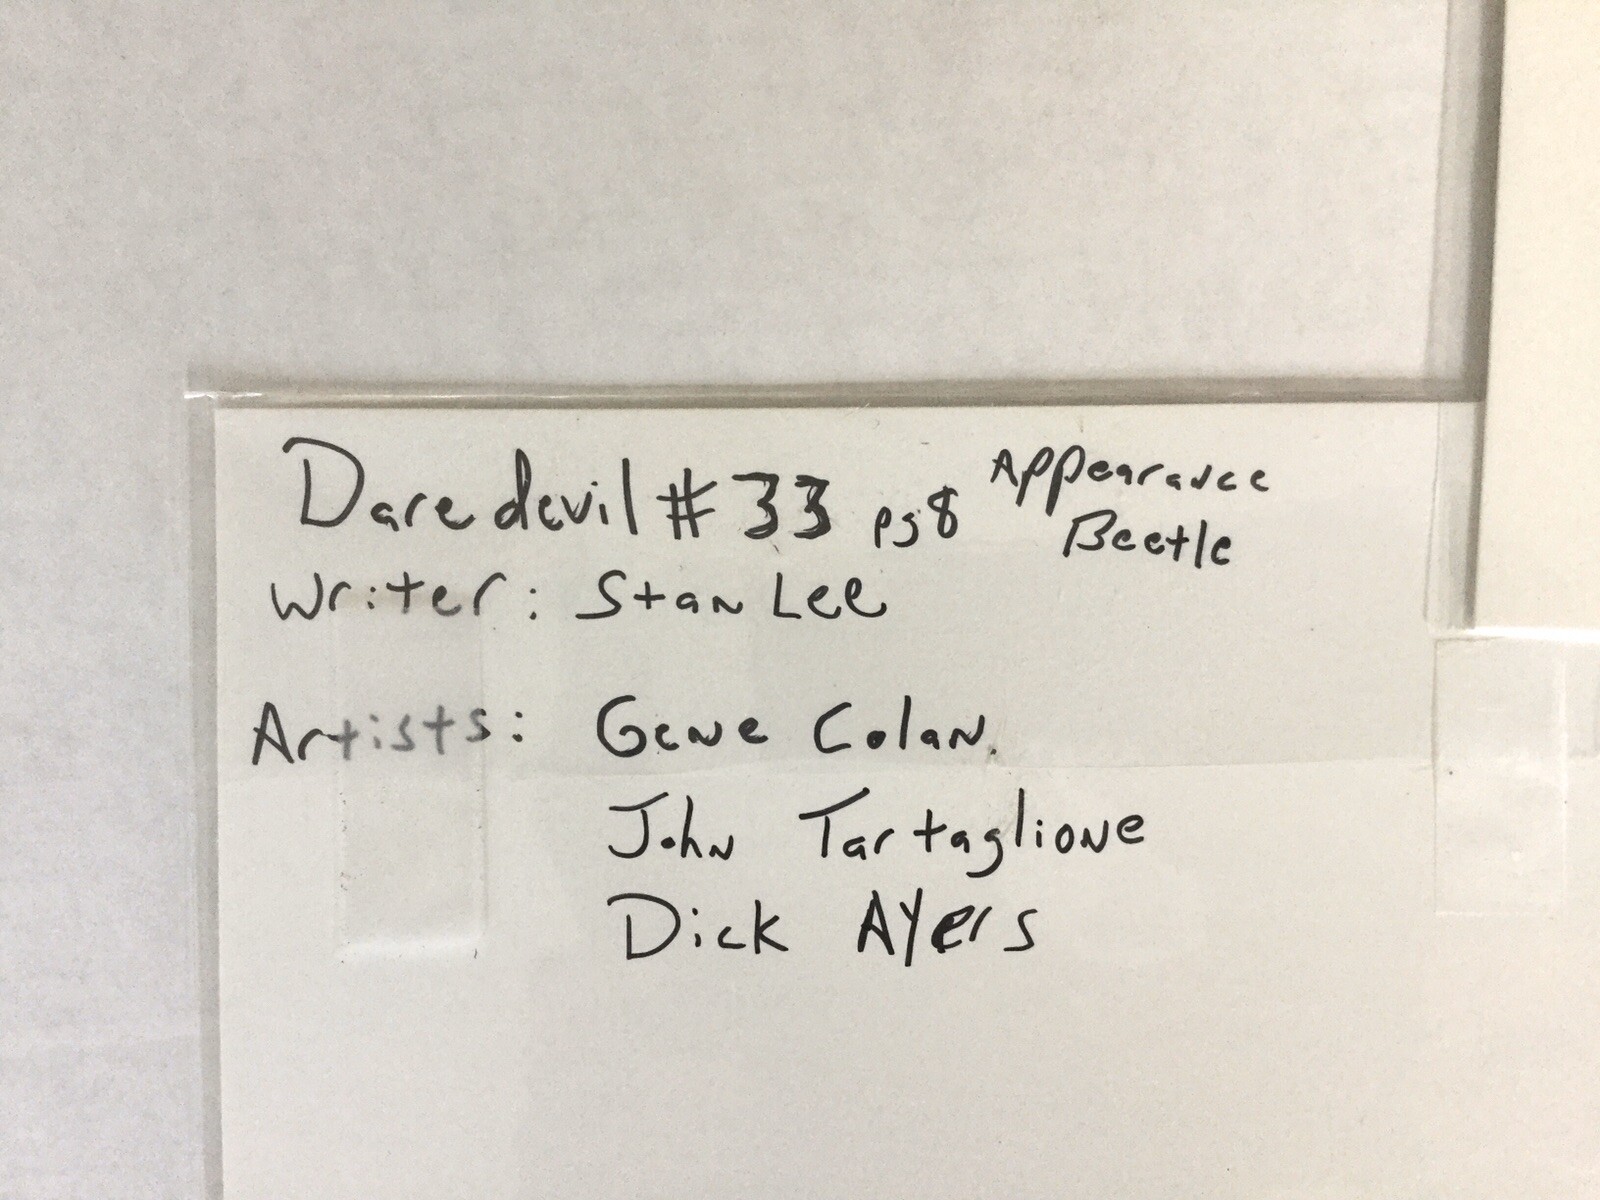 Daredevil #33 pg8 Appearance
Beetle
Writer: Stan Lee
Artists: Gene Colan.
John Tartaglione
Dick Ayers